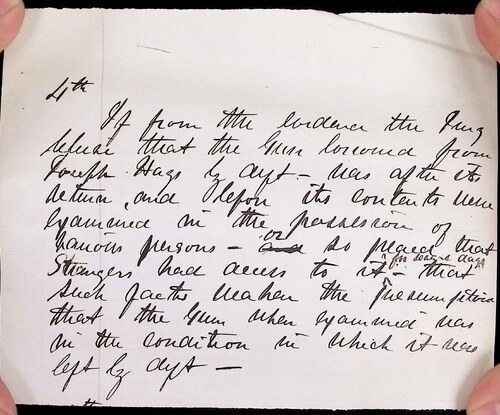 4th
If from the evidence the Jury
believe that the Gun borrowed from
Joseph Hugs by dft – was after its
return, and before its contents were
examined in the possession of
various persons – or so placed that
Strangers had access to it for some days – that
such facts weaken the presumption
that the Gun when examined was
in the condition in which it was
left by dft –